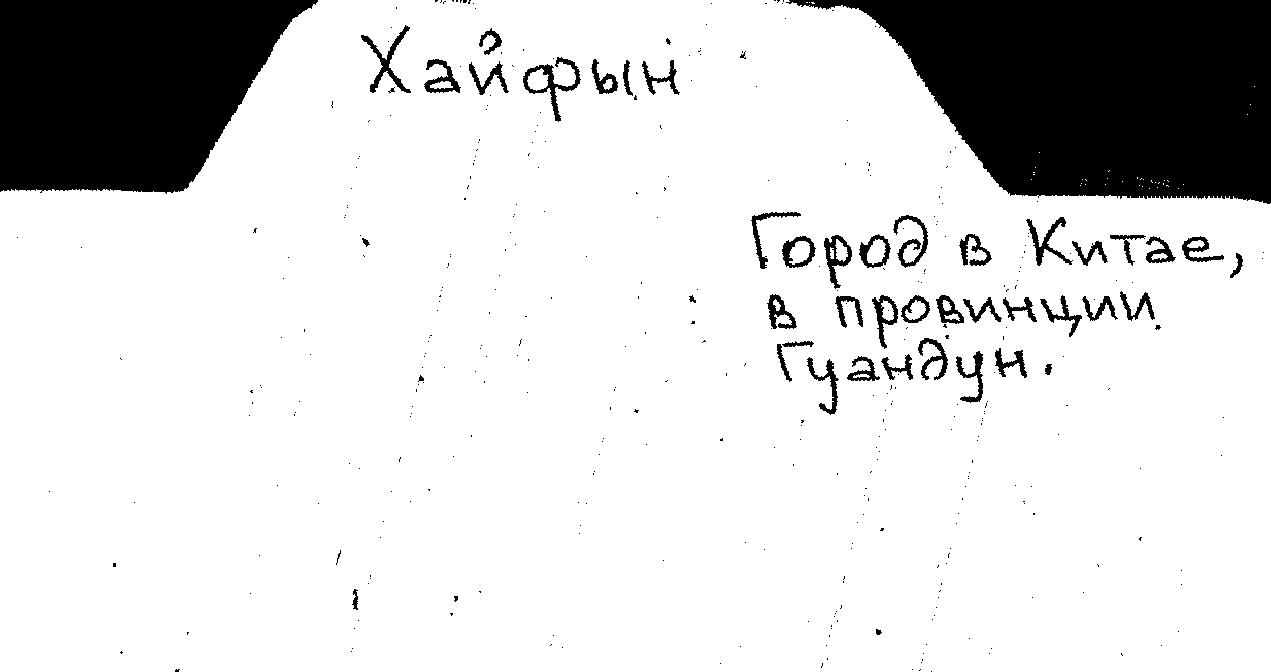 Хайфын
Город в Китае,
в провинции
Гуандун.